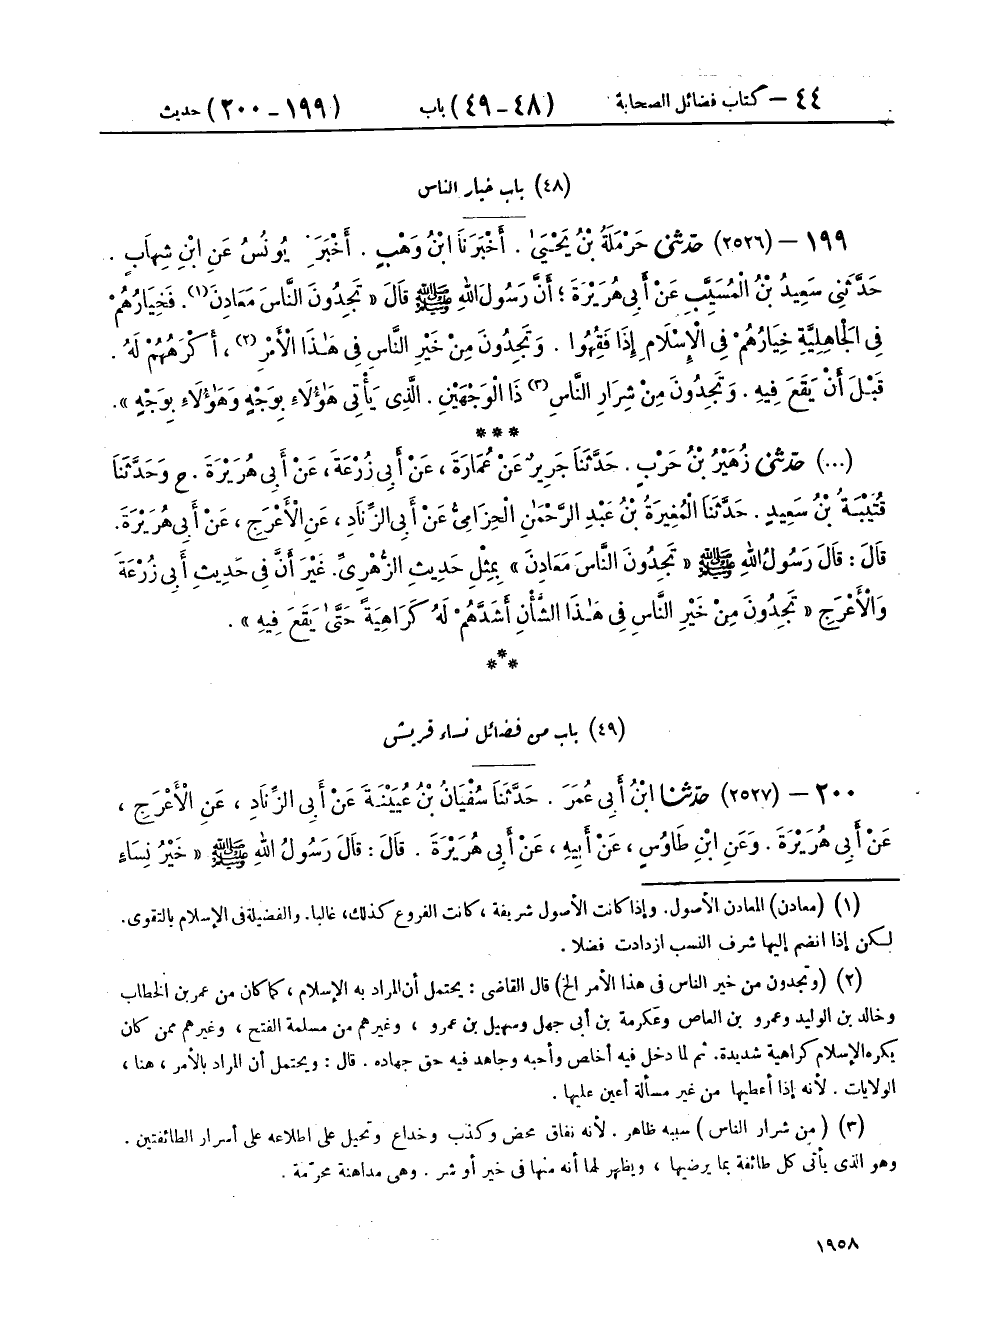 ٤٤ - كتاب فضائل الصحابة (٤٨ - ٤٩) باب (١٩٩ - ٢٠٠) حديث
(٤٨) باب خيار الناس
١٩٩ - (٢٥٢٦) حَدَّثَنِي حَرْمَلَةُ بْنُ يَحْيَىٰ . أَخْبَرَنَا ابْنُ وَهْبٍ . أَخْبَرَ يُونُسُ عَنِ ابْنِ شِهَابٍ .
حَدَّثَنِي سَعِيدُ بْنُ الْمُسَيَّبِ عَنْ أَبِي هُرَيْرَةَ ؛ أَنَّ رَسُولَ اللهِ ﷺ قَالَ « تَجِدُونَ النَّاسَ مَعَادِنَ (١) . فَخِيَارُهُمْ
فِي الْجَاهِلِيَّةِ خِيَارُهُمْ فِي الْإِسْلَامِ إِذَا فَقُهُوا . وَتَجِدُونَ مِنْ خَيْرِ النَّاسِ فِي هَٰذَا الْأَمْرِ (٢) ، أَكْرَهُهُمْ لَهُ .
قَبْلَ أَنْ يَقَعَ فِيهِ . وَتَجِدُونَ مِنْ شِرَارِ النَّاسِ (٣) ذَا الْوَجْهَيْنِ . الَّذِي يَأْتِي هَٰؤُلَاءِ بِوَجْهٍ وَهَٰؤُلَاءِ بِوَجْهٍ » .
***
(...) حَدَّثَنِي زُهَيْرُ بْنُ حَرْبٍ . حَدَّثَنَا جَرِيرٌ عَنْ عُمَارَةَ ، عَنْ أَبِي زُرْعَةَ ، عَنْ أَبِي هُرَيْرَةَ . ح وَحَدَّثَنَا
قُتَيْبَةُ بْنُ سَعِيدٍ . حَدَّثَنَا الْمُغِيرَةُ بْنُ عَبْدِ الرَّحْمَٰنِ الْحِزَامِيُّ عَنْ أَبِي الزِّنَادِ ، عَنِ الْأَعْرَجِ ، عَنْ أَبِي هُرَيْرَةَ.
قَالَ : قَالَ رَسُولُ اللهِ ﷺ « تَجِدُونَ النَّاسَ مَعَادِنَ » بِمِثْلِ حَدِيثِ الزُّهْرِيِّ. غَيْرَ أَنَّ فِي حَدِيثِ أَبِي زُرْعَةَ
وَالْأَعْرَجِ « تَجِدُونَ مِنْ خَيْرِ النَّاسِ فِي هَٰذَا الشَّأْنِ أَشَدَّهُمْ لَهُ كَرَاهِيَةً حَتَّىٰ يَقَعَ فِيهِ » .
***
(٤٩) باب من فضائل نساء قريش
٢٠٠ - (٢٥٢٧) حَدَّثَنَا ابْنُ أَبِي عُمَرَ . حَدَّثَنَا سُفْيَانُ بْنُ عُيَيْنَةَ عَنْ أَبِي الزِّنَادِ ، عَنِ الْأَعْرَجِ ،
عَنْ أَبِي هُرَيْرَةَ . وَعَنِ ابْنِ طَاوُسٍ ، عَنْ أَبِيهِ ، عَنْ أَبِي هُرَيْرَةَ . قَالَ : قَالَ رَسُولُ اللهِ ﷺ « خَيْرُ نِسَاءٍ
(١) (معادن) المعادن الأصول. وإذا كانت الأصول شريفة ، كانت الفروع كذلك، غالبا. والفضيلة فى الإسلام بالتقوى.
لكن إذا انضم إليها شرف النسب ازدادت فضلا .
(٢) (وتجدون من خير الناس فى هذا الأمر الخ) قال القاضى : يحتمل أن المراد به الإسلام ، كما كان من عمر بن الخطاب
وخالد بن الوليد وعمرو بن العاص وعكرمة بن أبى جهل وسهيل بن عمرو ، وغيرهم من مسلمة الفتح ، وغيرهم ممن كان
يكره الإسلام كراهية شديدة. ثم لما دخل فيه أخلص وأحبه وجاهد فيه حق جهاده . قال : ويحتمل أن المراد بالأمر ، هنا ،
الولايات . لأنه إذا أعطيها من غير مسألة أعين عليها .
(٣) ( من شرار الناس ) سببه ظاهر . لأنه نفاق محض وكذب وخداع وتحيل على اطلاعه على أسرار الطائفتين .
وهو الذى يأتى كل طائفة بما يرضيها ، ويظهر لها أنه منها فى خير أو شر . وهى مداهنة محرّمة .
١٩٥٨